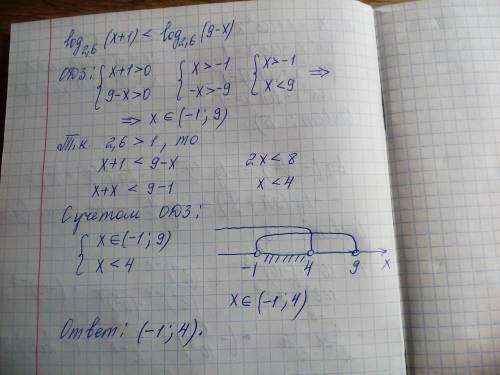 log₂,₆ (x+1) < log₂,₆ (9-x)
ОДЗ: { x+1>0 { x>-1 { x>-1 ⇒
{ 9-x>0 { -x>-9 { x<9
⇒ x ∈ (-1; 9)
Т.к. 2,6 > 1, то
x+1 < 9-x 2x < 8
x+x < 9-1 x < 4
С учетом ОДЗ:
{ x ∈ (-1; 9)
{ x < 4
-1 4 9 x
x ∈ (-1; 4)
Ответ: (-1; 4).